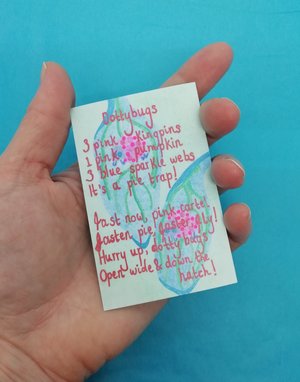 Dottybugs
3 pink kingpins
1 pink pumpkin
3 blue sparkle webs
It's a pie trap!
Fast now, pink cartel
Fasten pie, faster fly!
Hurry up, dotty bugs
Open wide & down the
hatch!